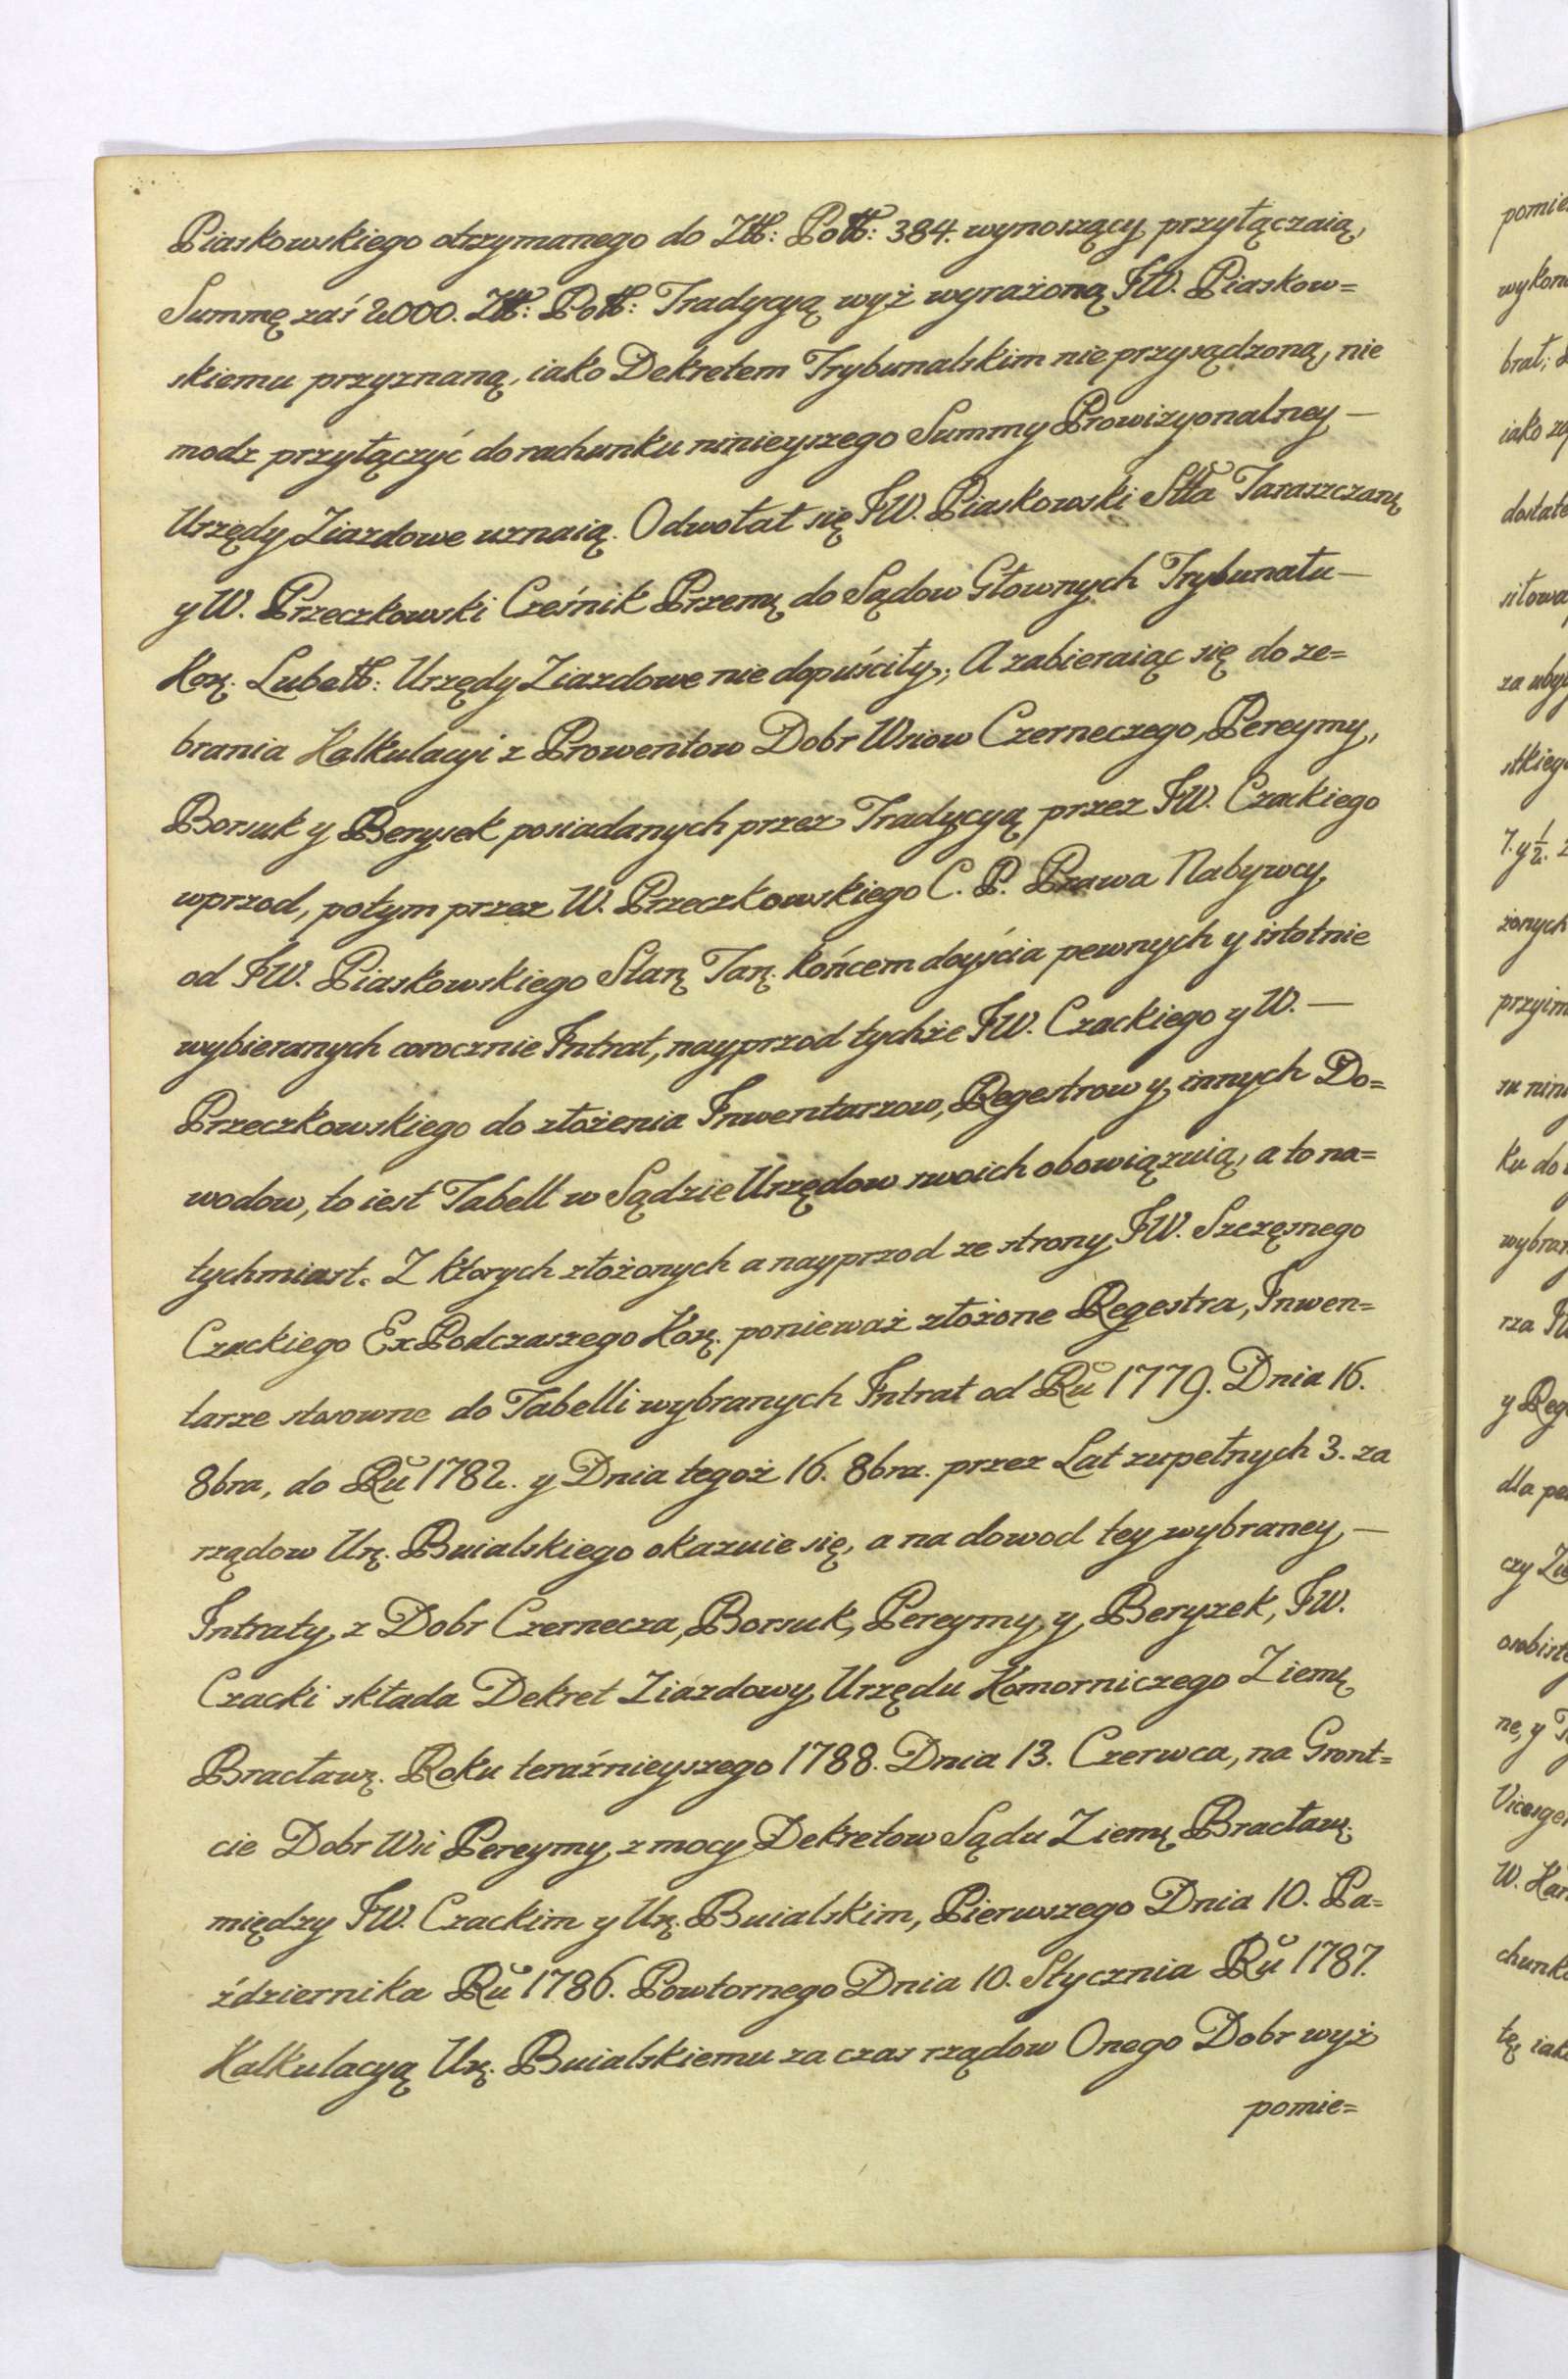 Piaskowskiego otrzymanego do Złł: Połł: 384. wynoszący przyłączaią,
Summę zaś 2000. Złł: Połł: Tradycyą wyż wyrażoną JW. Piaskow=
skiemu przyznaną, iako Dekretem Trybunalskim nie przysądzoną, nie
modz przyłączyć do rachunku ninieyszego Summy Prowizyonalney —
Urzędy Ziazdowe uznaią. Odwołał się JW. Piaskowski Stta Taraszczanę
y W. Przeczkowski Cześnik Przemę do Sądow Głownych Trybunału —
Korę. Lubełł: Urzędy Ziazdowe nie dopuściły; A zabieraiąc się do ze=
brania Kalkulacyi z Prowentow Dobr Wsiow Czerneczego, Pereymy,
Borsuk y Berysek posiadanych przez Tradycyą przez JW. Czackiego
wprzod, potym przez W. Przeczkowskiego C. P. Prawa Nabywcy
od JW. Piaskowskiego Starę Tarę. końcem doyścia pewnych y istotnie
wybieranych corocznie Intrat, nayprzod tychże JW. Czackiego y W. —
Przeczkowskiego do złożenia Inwentarzow, Regestrow y innych Do=
wodow, to iest Tabell w Sądzie Urzędow swoich obowiązuią, a to na=
tychmiast. Z ktorych złożonych a nayprzod ze strony JW. Szczęsnego
Czackiego Ex Podczaszego Korę. ponieważ złożone Regestra, Inwen=
tarze stosowne do Tabelli wybranych Intrat od Ru 1779. Dnia 16.
8bra, do Ru 1782. y Dnia tegoż 16. 8bra. przez Lat zupełnych 3. za
rządow Urę. Buialskiego okazuie się, a na dowod tey wybraney —
Intraty, z Dobr Czernecza, Borsuk, Pereymy, y Beryzek, JW.
Czacki składa Dekret Ziazdowy Urzędu Komorniczego Ziemę
Bracławę. Roku teraźnieyszego 1788. Dnia 13. Czerwca, na Gront=
cie Dobr Wsi Pereymy z mocy Dekretow Sądu Ziemę Bracławę.
między JW. Czackim y Urę. Buialskim, Pierwszego Dnia 10. Pa=
ździernika Ru 1786. Powtornego Dnia 10. Stycznia Ru 1787.
Kalkulacyą Urę. Buialskiemu za czas rządow Onego Dobr wyż
pomie=